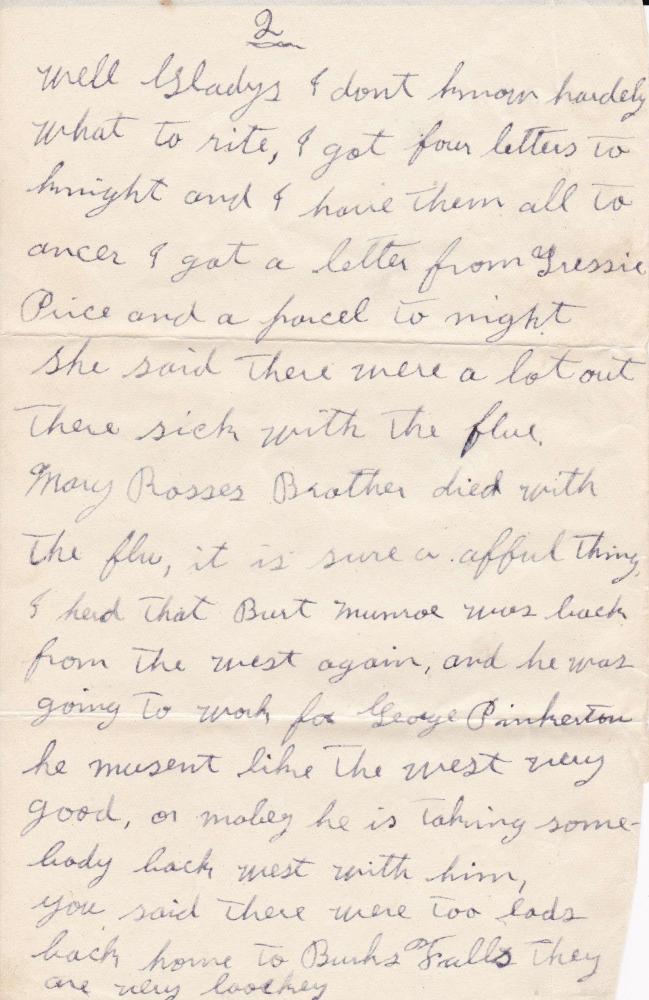 2
Well Gladys I dont know hardely
what to rite, I got four letters to
knight and I have them all to
ancer I got a letter from Gressie
Price and a parcel to night
she said there were a lot out
there sick with the flue.
Mary Rosses Brother died with
the flu, it is sure a afful thing,
I herd that Burt Munroe was back
from the west again, and he was
going to work for George Pinkerton
he musent like the west very
good, or mabey he is taking some-
body back west with him,
you said there were too lads
back home to Burks Falls they
are very loockey